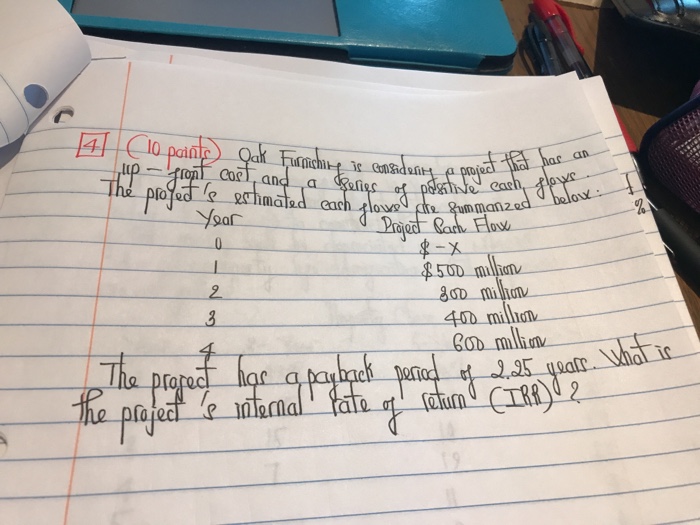 4 (10 points) Oak Furnishing is considering a project that has an
up-front cost and a series of positive cash flows.
The project's estimated cash flows are summarized below:
Year Project Cash Flow
0 $-X
1 $500 million
2 300 million
3 400 million
4 600 million
The project has a payback period of 2.25 years. What is
the project's internal rate of return (IRR)?